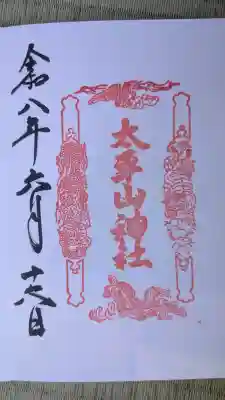 太平山神社
令八年六月十六日